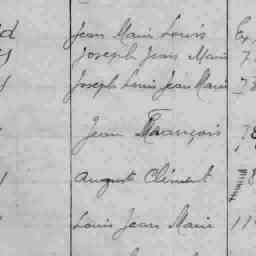 d Jean Marie Louis Ex
Joseph Jean Marie 7
Joseph Louis Jean Marie 78
Jean François 78
Auguste Clément 8
Louis Jean Marie 11